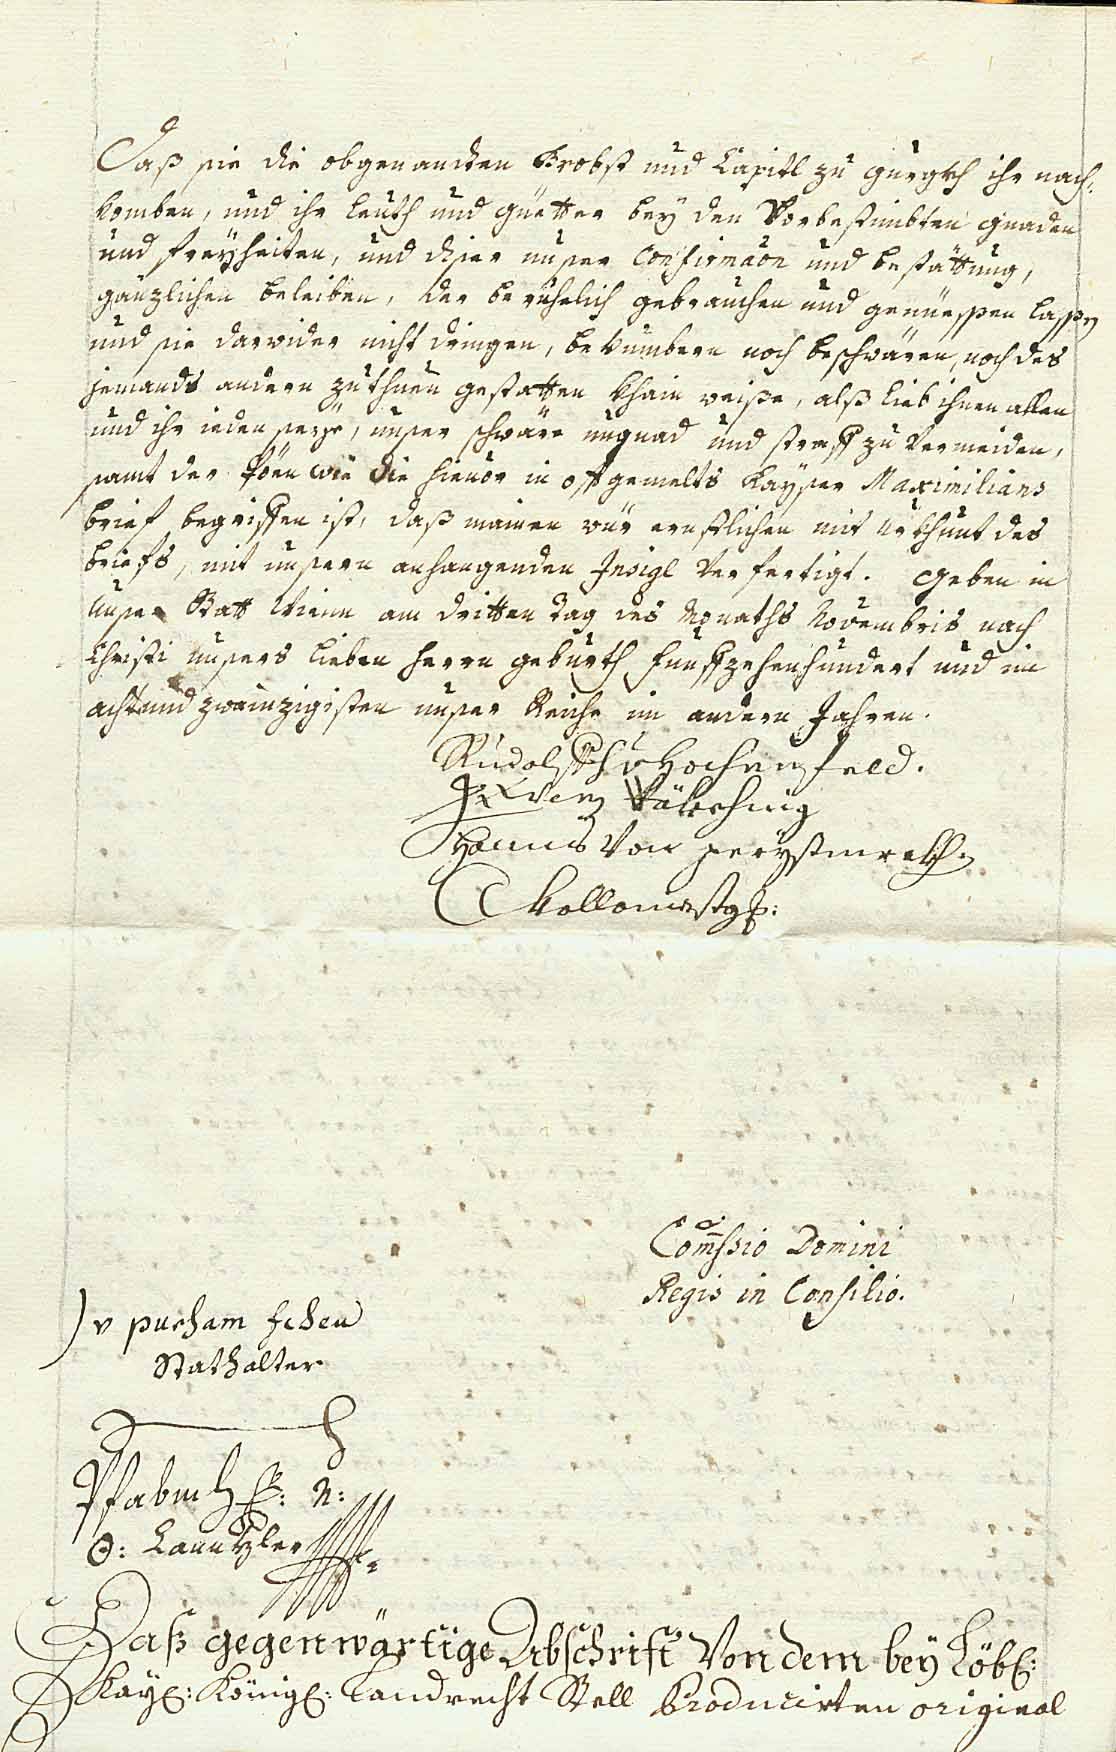 Daß sie die obgenandten Probst und Capitl zu gurgkh ihr nach¬
komben, und ihr leuth und güetter bey den Vorbestimbten gnaden
und freyheiten, und diser unser Confirmaon und bestättung,
gänzlichen beleiben, der beruhelich gebrauchen und genüessen lassen
und sie darwider nicht dringen, bekümbern noch beschwären, noch des
jemands andern zuthuen gestatten khain weiße, alß lieb ihnen allen
und ihr ieden seye, unser schwäre ungnad und straff zu Vermeiden,
samt der Pöen wie die hieuor in offtgemelts Kayser Maximilians
brief begriffen ist, daß mainen wür ernstlichen mit Urkhunt des
briefs, mit unsern anhangenden Insigl Verfertigt. geben in
Unser Statt Wienn am dritten Tag des Monaths Novembris nach
Christi unsers lieben herrn geburth funffzehenhundert und im
achtundzwainzigisten unser Reiche im andern Jahren.
Rudolff v Hochenfeld.
Hanns Von
Commssio Domini
Regis in Consilio.
v pucham
Stathalter
O: Canntzler
Daß gegenwärtige Abschrift Von dem bey Löbl:
Kayl: Königl: Landrecht Stell Producirten original